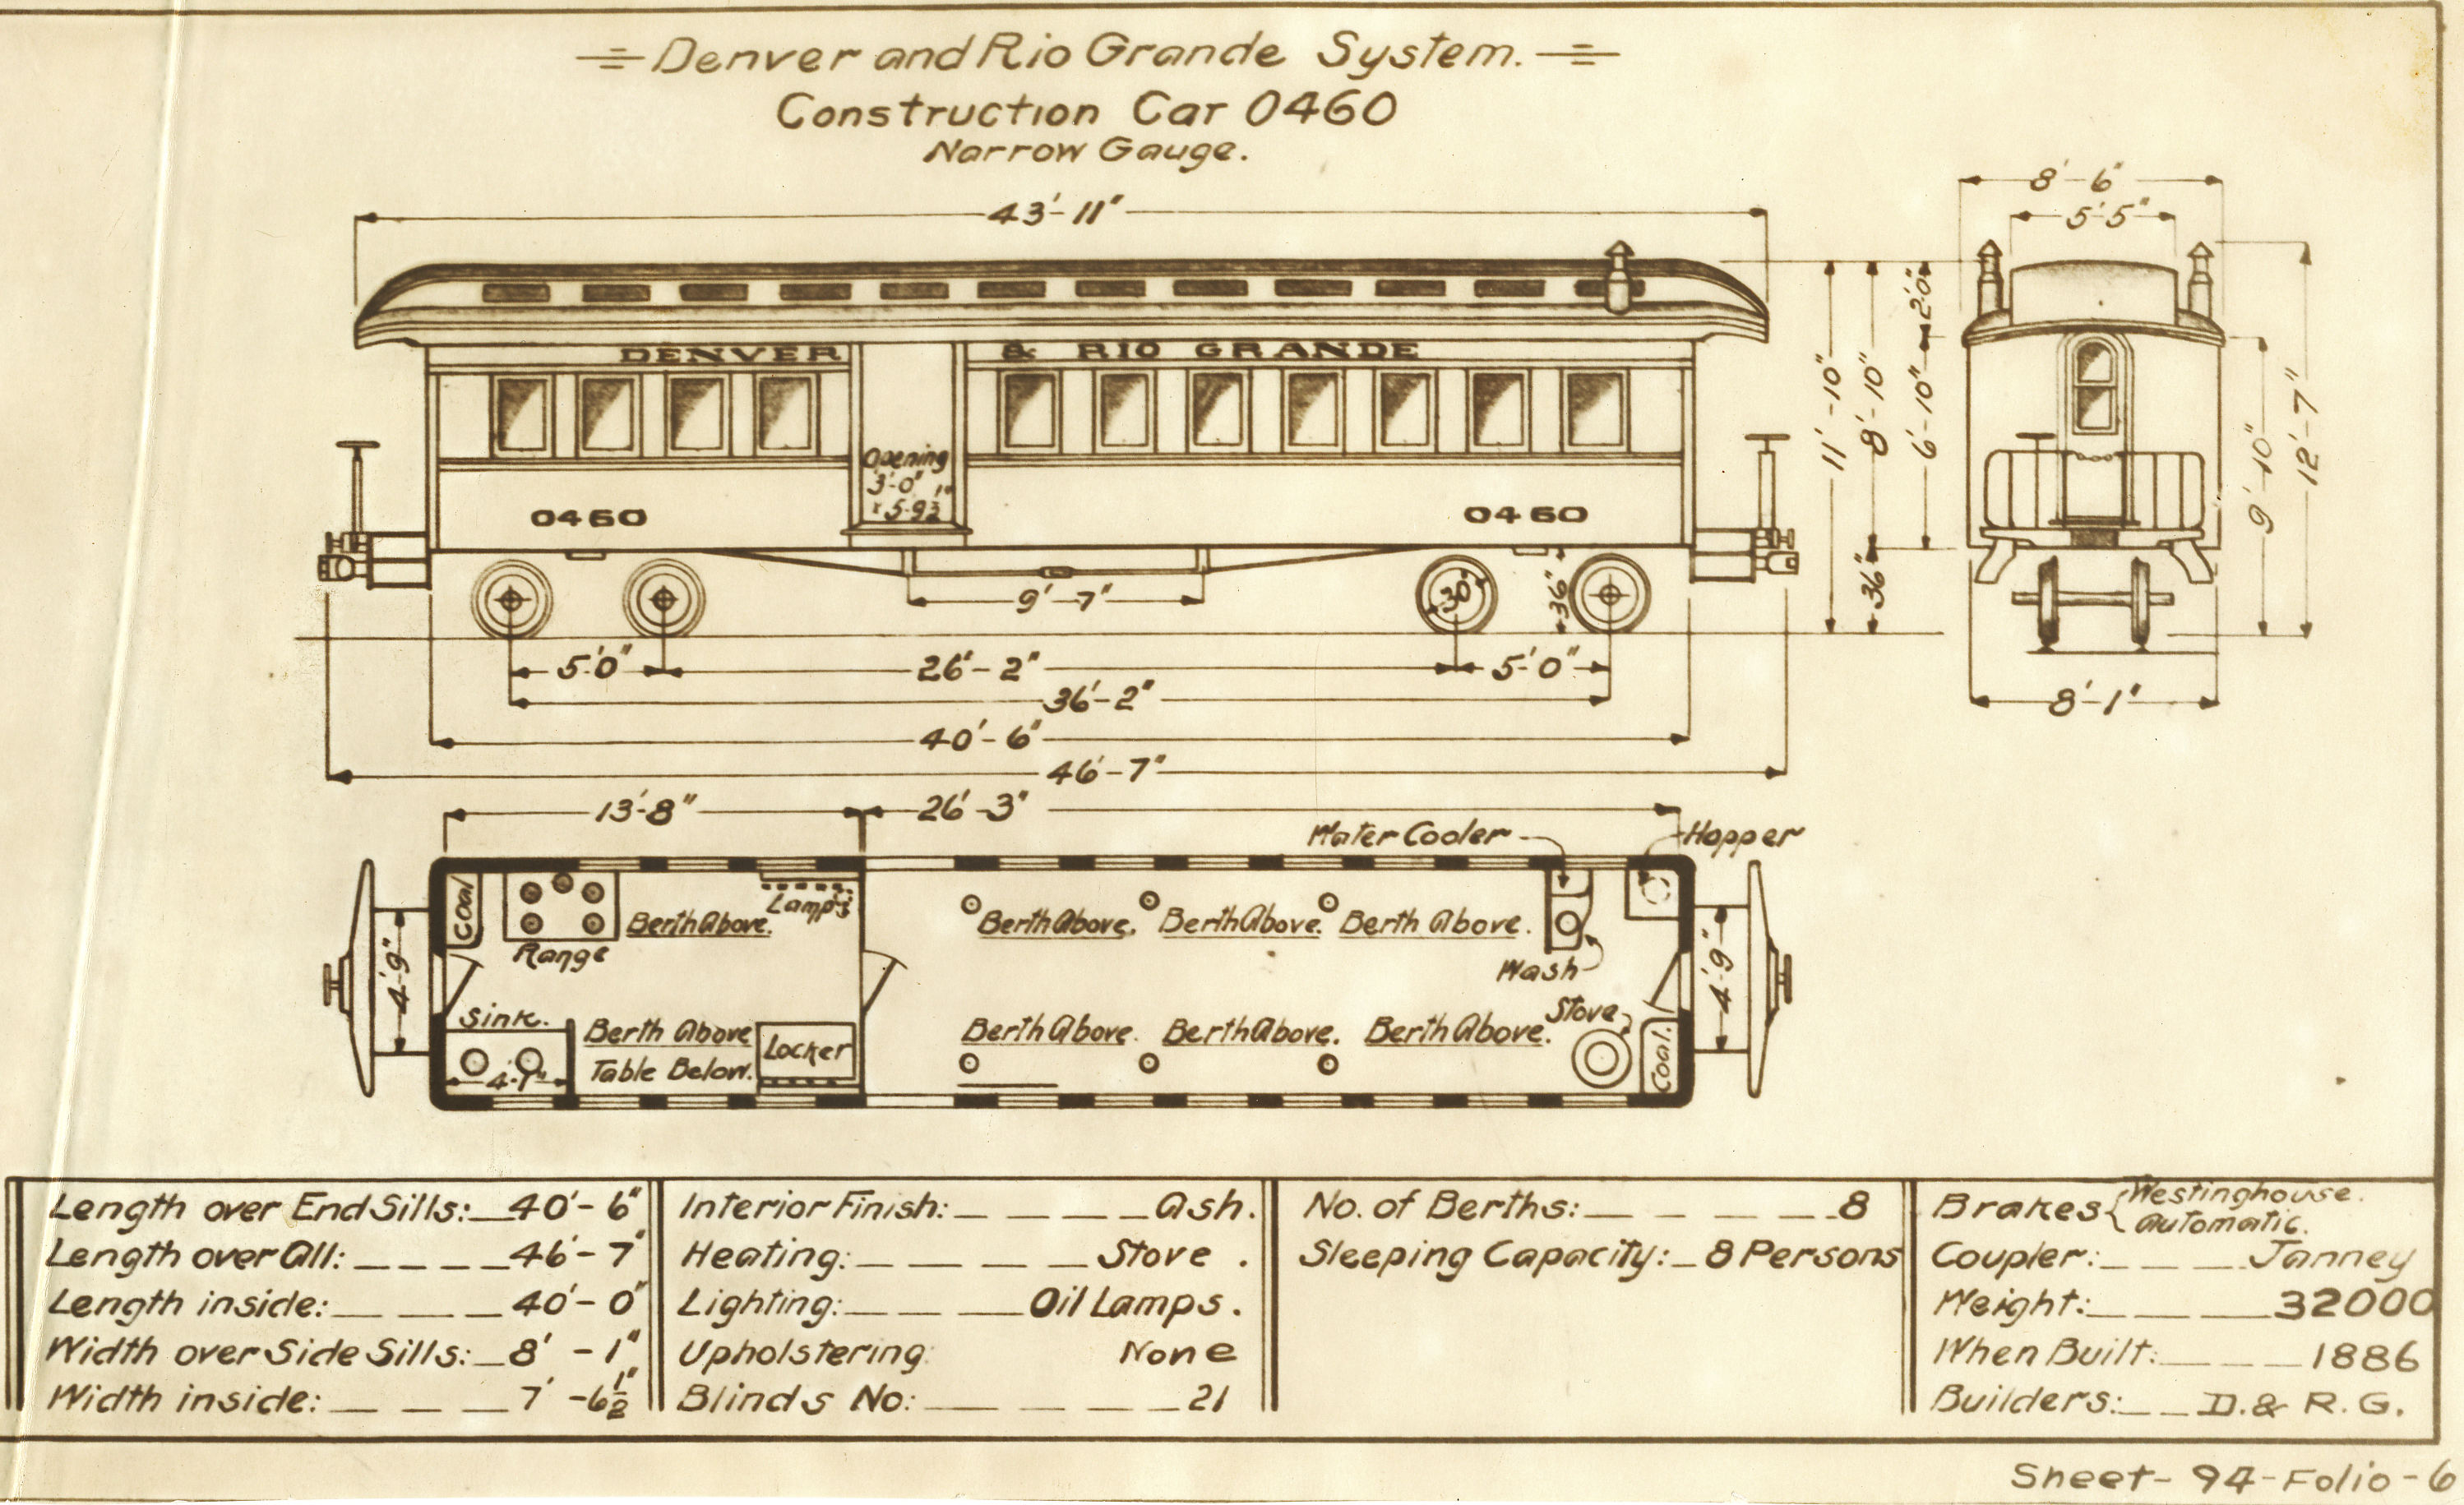 Denver and Rio Grande System.
Construction Car 0460
Narrow Gauge.
43'-11"
8'-6"
5'-5"
DENVER & RIO GRANDE
Opening
3'-0"
x 5'-9½"
0460
0460
11'-10"
8'-10"
36"
2'-0"
6'-10"
9'-10"
12'-7"
9'-7"
30"
36"
5'-0"
26'-2"
5'-0"
36'-2"
8'-1"
40'-6"
46'-7"
13'-8"
26'-3"
Water Cooler
Hopper
Coal
Range
Berth Above.
Lamps
Berth Above.
Berth Above.
Berth Above.
Wash
4'-9"
4'-9"
Sink.
4'-1"
Berth Above
Table Below.
Locker
Berth Above.
Berth Above.
Berth Above.
Stove
Coal.
Length over End Sills: 40'-6"
Length over All: 46'-7"
Length inside: 40'-0"
Width over Side Sills: 8'-1"
Width inside: 7'-6½"
Interior Finish: Ash.
Heating: Stove.
Lighting: Oil Lamps.
Upholstering: None
Blinds No: 21
No. of Berths: 8
Sleeping Capacity: 8 Persons
Brakes { Westinghouse.
Automatic.
Coupler: Janney
Weight: 32000
When Built: 1886
Builders: D. & R. G.
Sheet-94-Folio-6